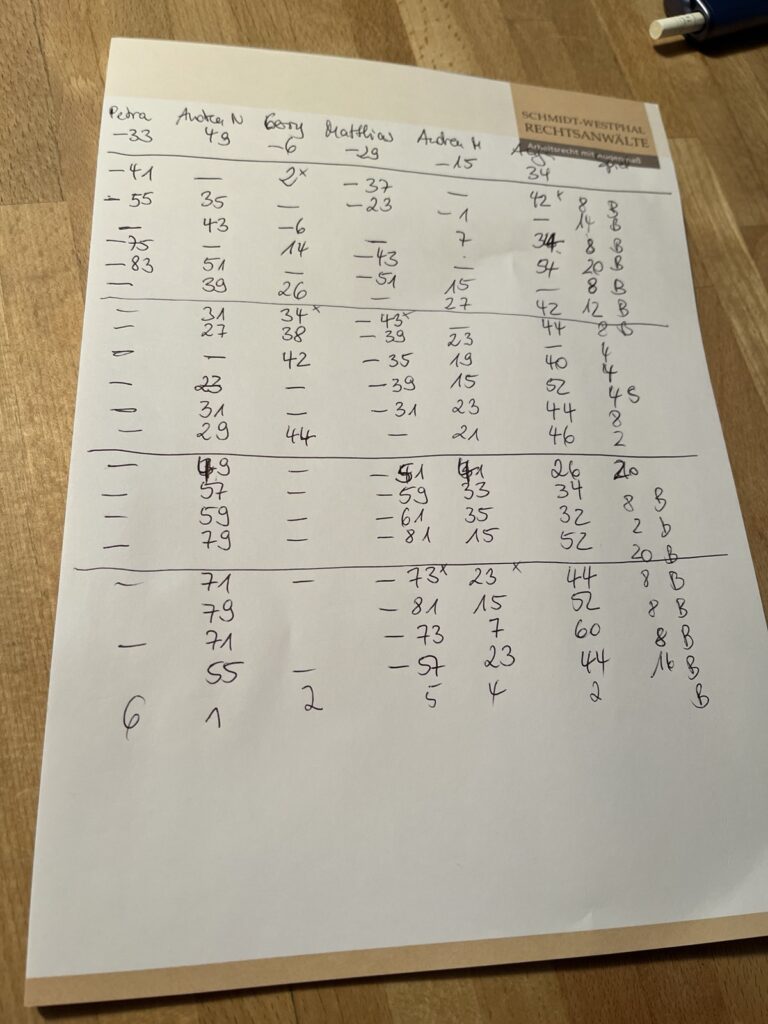 SCHMIDT-WESTPHAL
RECHTSANWÄLTE
Arbeitsrecht mit Augenmaß
Petra Andrea N Gerry Matthias Andrea M
-33 49 -6 -29 -15 34
-41 — 2x -37 — 42x 8 B
-55 35 — -23 -1 — 14 B
— 43 -6 — 7 34 8 B
-75 — 14 -43 — 54 20 B
-83 51 — -51 15 — 8 B
— 39 26 — 27 42 12 B
— 31 34x -43x — 44 8 B
— 27 38 -39 23 — 4
— — 42 -35 19 40 4
— 23 — -39 15 52 4 S
— 31 — -31 23 44 8
— 29 44 — 21 46 2
— 49 — -51 41 26 20
— 57 — -59 33 34 8 B
— 59 — -61 35 32 2 b
— 79 — -81 15 52 20 B
— 71 — -73x 23x 44 8 B
79 -81 15 52 8 B
— 71 -73 7 60 8 B
55 — -57 23 44 16 B
6 1 2 5 4 2 B